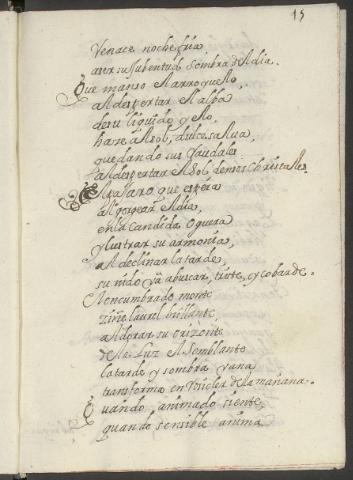 15
Venace noche fria
ayer su Jubentud, sombra de Adia.
Que manso Aarroyuelo,
al despertar el alba
de su liquido yelo,
haze al sol, dulce salua,
quedando sus raudales
al despertar el sol, densos Christales,
Elpajaro que espera
al gorgear el dia,
en la candida oguera
ylustrar su armonias,
al declinar la tarde,
su nido ya abuscar, triste, y cobarde.
el encumbrado monte
ziñe laurel brillante
al dorar su orizonte
de la Luz el semblante
la tarde y sombra yana
transforma en Rosicler de la mañana.
Quando, animado siente,
quando sensible anima